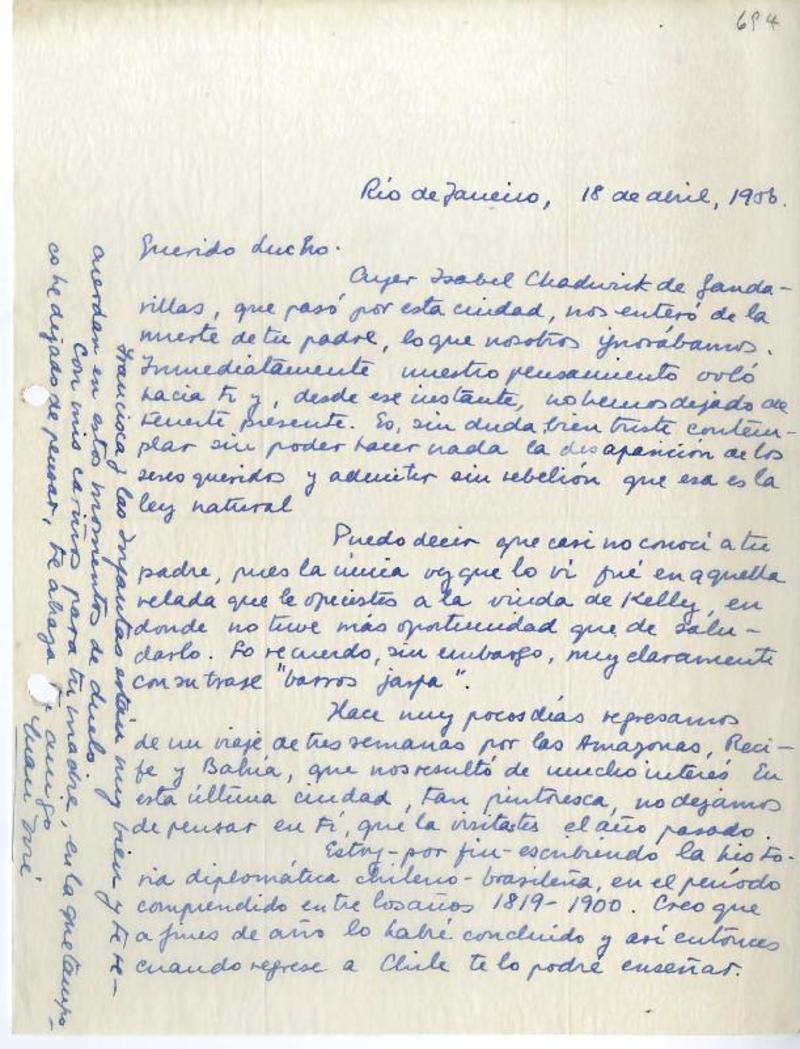 694
Río de Janeiro, 18 de abril, 1956.
Querido Lucho.
Ayer Isabel Chadwick de Ganda-
rillas, que pasó por esta ciudad, nos enteró de la
muerte de tu padre, lo que nosotros ignorábamos.
Inmediatamente nuestro pensamiento voló
hacia ti y, desde ese instante, no hemos dejado de
tenerte presente. Es, sin duda, bien triste contem-
plar sin poder hacer nada la desaparición de los
seres queridos y admitir sin rebelión que esa es la
ley natural
Puedo decir que casi no conocí a tu
padre, pues la única vez que lo vi fué en aquella
velada que le ofrecistes a la viuda de Kelly, en
donde no tuve más oportunidad que de salu-
darlo. Lo recuerdo, sin embargo, muy claramente
con su traje "barros jarpa".
Hace muy pocos días regresamos
de un viaje de tres semanas por las Amazonas, Reci-
fe y Bahía, que nos resultó de mucho interés En
esta última ciudad, tan pintoresca, no dejamos
de pensar en tí, que la visitastes el año pasado.
Estoy-por fin-escribiendo la histo-
ria diplomática chileno-brasileña, en el período
comprendido entre los años 1819-1900. Creo que
a fines de año lo habré concluido y así entonces
cuando regrese a Chile te lo podré enseñar.
Francisca y las Infantas están muy bien y te re-
cuerdan en estos momentos de duelo
Con mis cariños para tu madre, en la que tampo-
co he dejado de pensar, te abraza tu amigo
Juan José